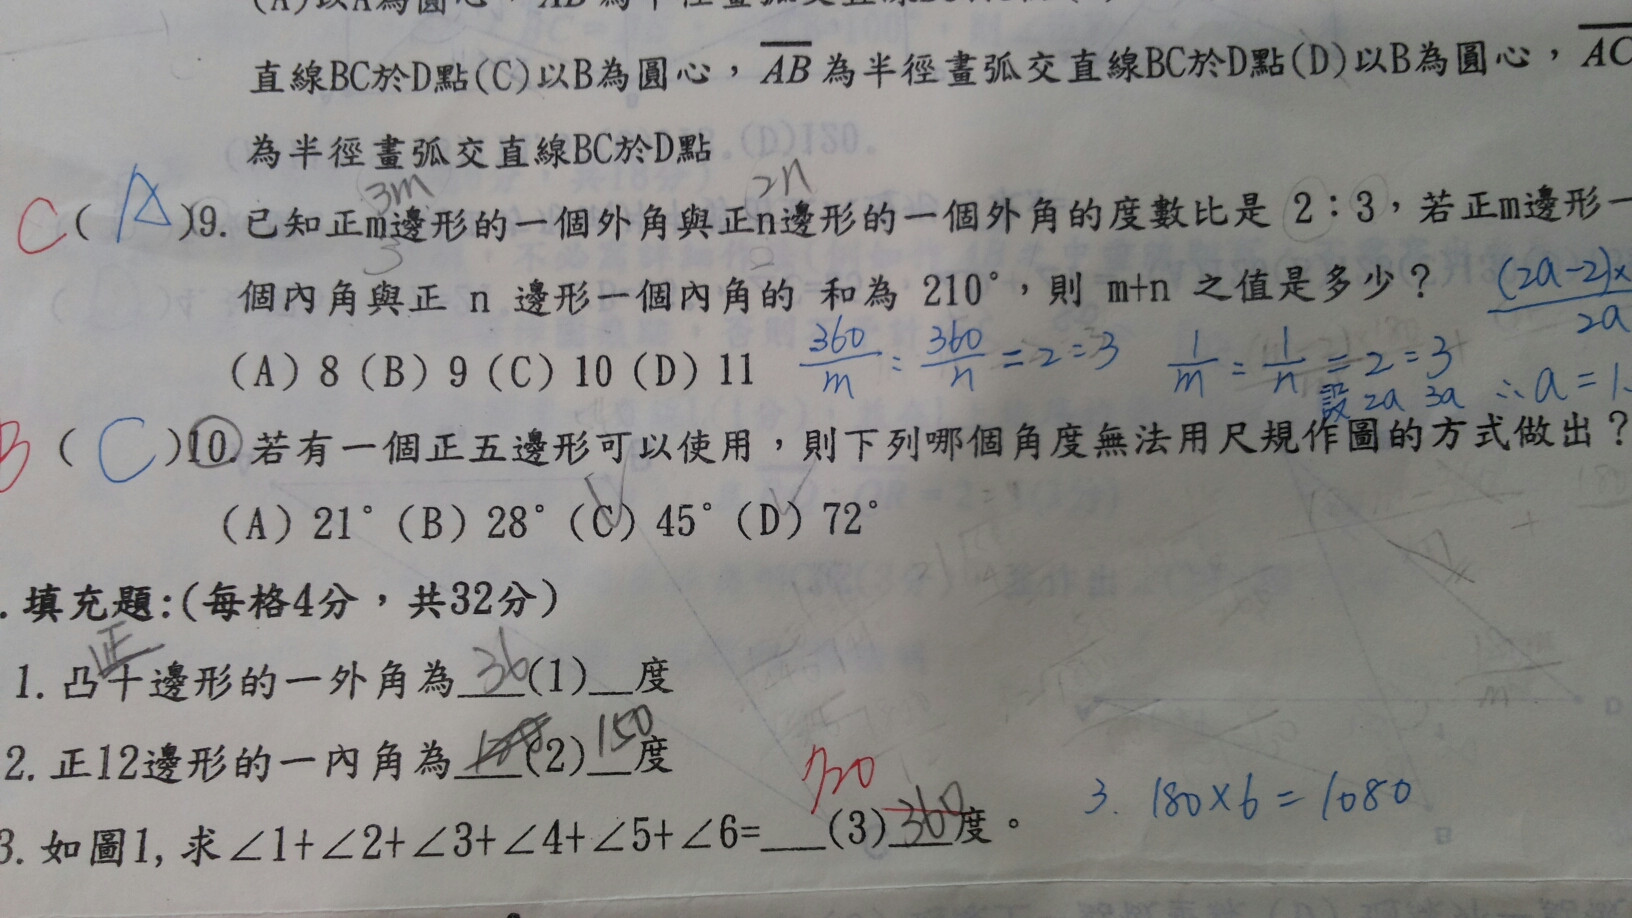 直線BC於D點(C)以B為圓心，AB為半徑畫弧交直線BC於D點(D)以B為圓心，AC
為半徑畫弧交直線BC於D點
3m 2n
C ( A )9. 已知正m邊形的一個外角與正n邊形的一個外角的度數比是 2：3，若正m邊形一
3 2
個內角與正 n 邊形一個內角的 和為 210°，則 m+n 之值是多少？
(2a-2)x
2a
(A) 8 (B) 9 (C) 10 (D) 11
360/m : 360/n = 2 : 3
1/m : 1/n = 2 : 3
設 2a 3a ∴ a = 1
B ( C )10. 若有一個正五邊形可以使用，則下列哪個角度無法用尺規作圖的方式做出？
(A) 21° (B) 28° (C) 45° (D) 72°
. 填充題:(每格4分，共32分)
正
1. 凸十邊形的一外角為 36 (1)__度
2. 正12邊形的一內角為___(2) 150 度
720
3. 如圖1, 求∠1+∠2+∠3+∠4+∠5+∠6=___(3) 360 度。
3. 180×6=1080